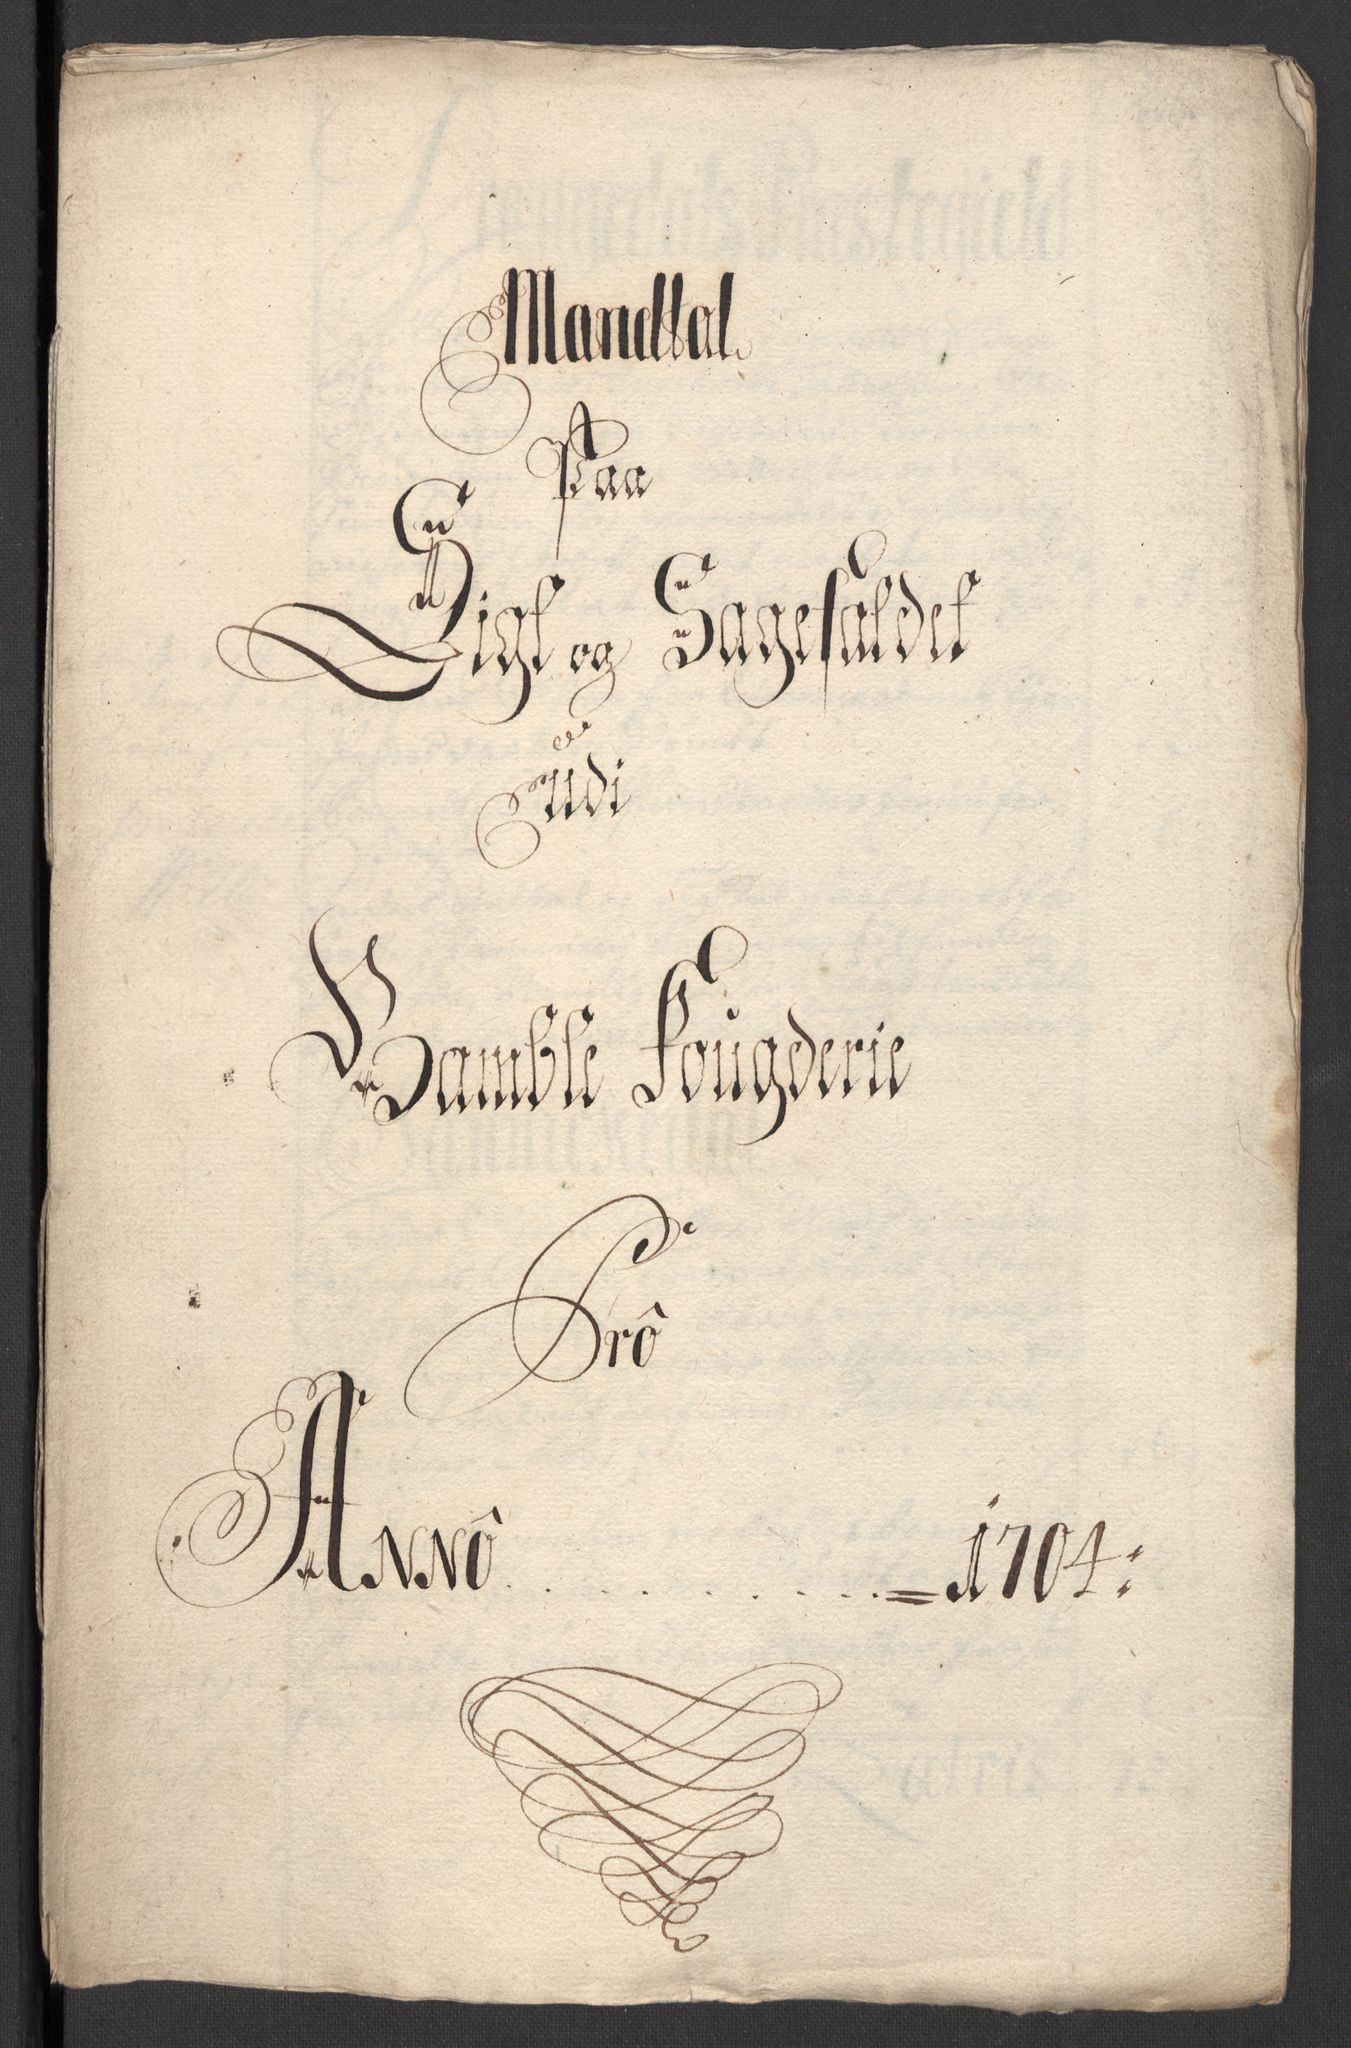 Mandtal.
Paa
Sigt og Sagefaldet
udi
Bamble Fougderie
Prô
Annô . . . . . . . . . . = 1704: